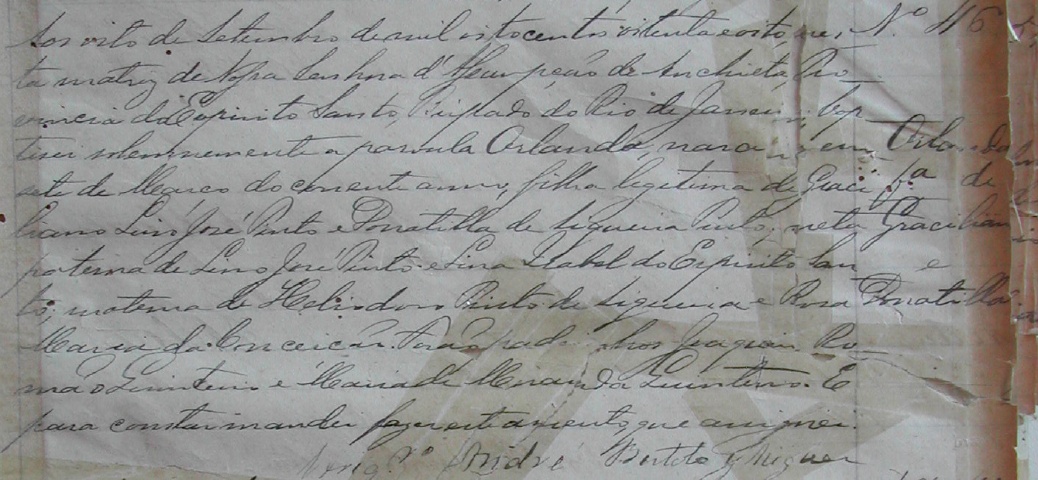 Aos oito de Setembro de mil oitocentos oitenta e oito nes
ta matriz de Nossa Senhora d'Assumpção de Anchieta, Pro
vincia do Espirito Santo, Bispado do Rio de Janeiro, bap
tisei solemnemente a parvula Orlanda, nascida em
sete de Março do corrente anno, filha legitima de Graci
liano Luis José Pinto e Donatilla de Siqueira Pinto, neta
paterna de Lino José Pinto e Lina Isabel do Espirito San
to; materna de Heliodoro Pinto de Siqueira e Rosa
Maria da Conceição. Forão padrinhos Joaquim Ro
mão Quinteiro e Maria de Miranda Quintino. E
para constar mandei fazer este assento, que assignei.
Vig.º André
Nº 116
Orlanda
fª de
Graciliano
e
Donatilla